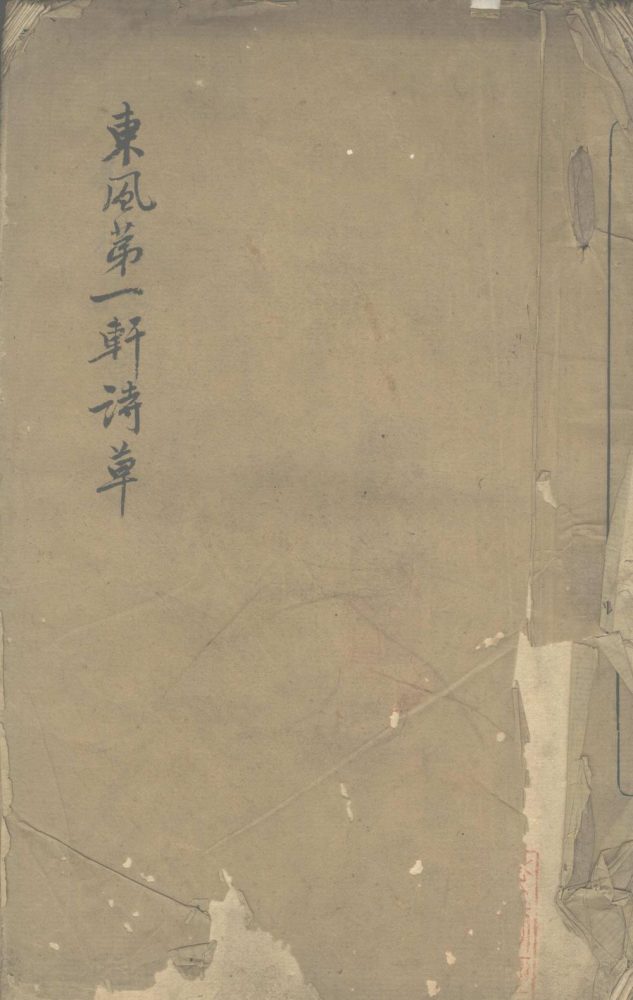 東風苐一軒詩草